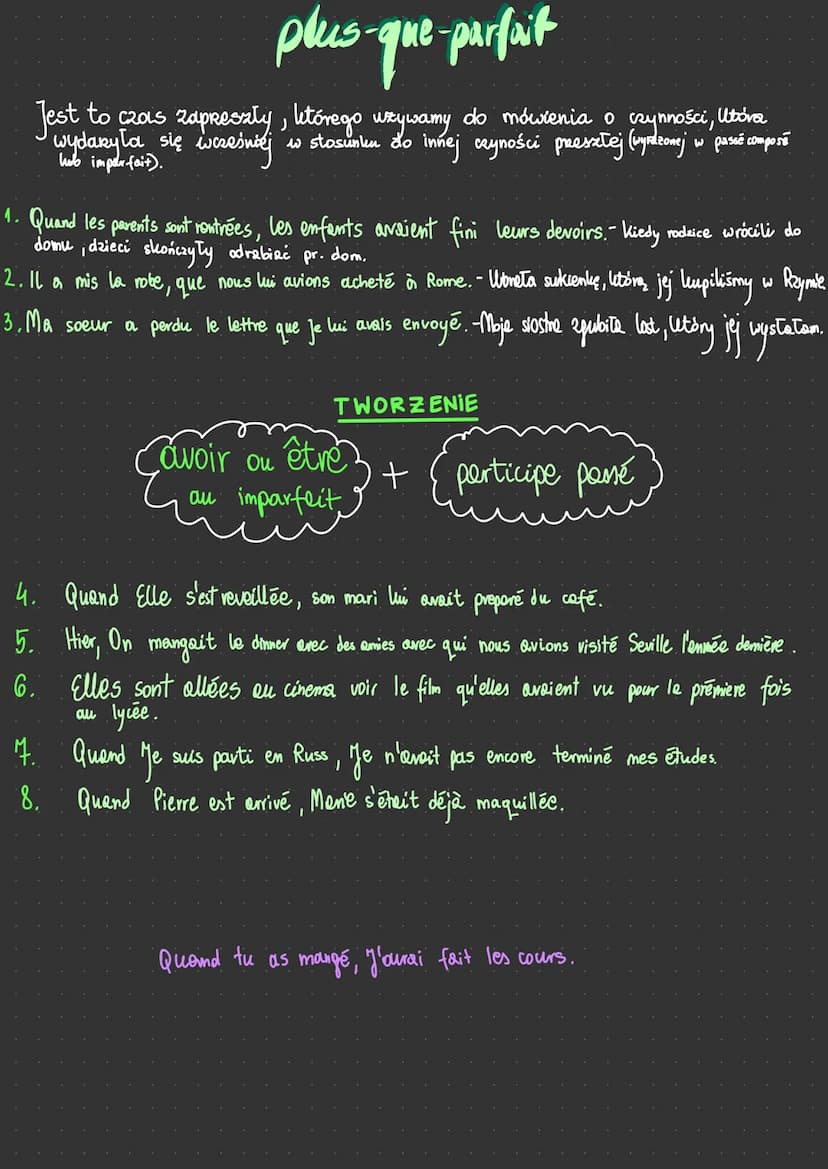 plus-que-parfait
Jest to czas zapreszły, którego używamy do mówienia o czynności, która
wydarzyła się wcześniej w stosunku do innej czyności preszłej (wyrażonej w passé composé
lub imparfait).
1. Quand les parents sont rentrées, les enfants avaient fini leurs devoirs. - kiedy rodzice wrócili do
domu, dzieci skończyły odrabiać pr. dom.
2. Il a mis la robe, que nous lui avions acheté à Rome. - sukienkę, którą jej kupiliśmy w Rzymie.
3. Ma soeur a perdu le lettre que je lui avais envoyé. - Moja siostra zgubiła list, który jej wysłałam.
TWORZENIE
avoir ou être
au imparfait
+
participe passé
4. Quand Elle s'est reveillée, son mari lui avait preparé du café.
5. Hier, On mangait le dinner avec des amies avec qui nous avions visité Seville l'année dernière.
6. Elles sont allées au cinema voir le film qu'elles avaient vu pour la prémiere fois
au lycée.
7. Quand Je suis parti en Russ, Je n'avait pas encore terminé mes études.
8. Quand Pierre est arrivé, Marie s'était déjà maquillée.
Quand tu as mangé, J'aurai fait les cours.